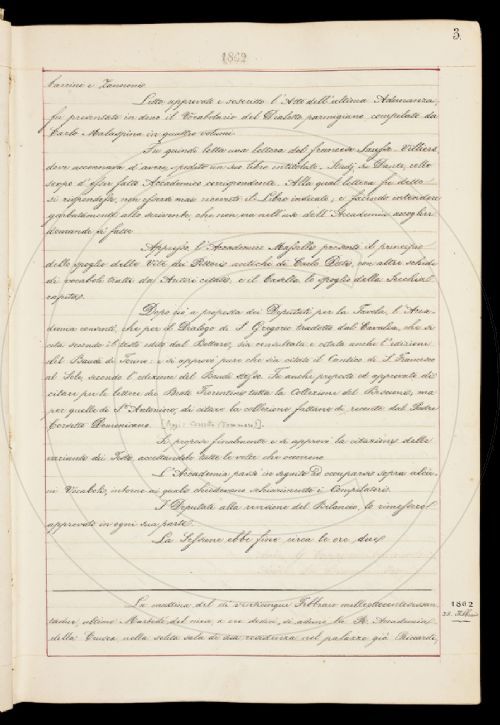 3.
1862
barrino e Zannonio
Letto approvato e soscritto l'Atto dell'ultima Adunanza,
fu presentato in dono il Vocabolario del Dialetto parmigiano, compilato da
Carlo Malaspina in quattro volumi.
Fu quindi letta una lettera del francese Villiers
dove accennava d'avere spedito un suo libro intitolato Studj su Dante, collo
scopo d'esser fatto Accademico corrispondente. Alla qual lettera fu detto
si rispondesse, non essersi mai ricevuto il Libro indicato; e facendo intendere
garbatamente allo scrivente, che non era nell'uso dell'Accademia accoglier
domande sì fatte.
Appresso, l'Accademico presentò il principio
dello spoglio delle Vite dei Pittori antichi di Carlo Dati, con altre schede
di vocaboli tratti da Autori citati, e il Casella lo spoglio della Secchia
rapita.
Dopo ciò a proposta dei Deputati per la Tavola, l'Acca-
demia convenne, che per il Dialogo di S. Gregorio tradotto dal Cavalca, che si
cita secondo il testo edito dal Bottari, sia consultata e citata anche l'edizione
del Baudi di Vesme: e si approvò pure che sia citato il Cantico di S. Francesco
al Sole, secondo l'edizione del Baudi stesso. Fu anche proposto ed approvato di
citare per le lettere dei Beati Fiorentini tutta la Collezione del Biscioni, ma
per quelle di S. Antonino, di citare la collezione fattane di recente dal Padre
Corretto Domenicano.
Si propose finalmente e si approvò la citazione delle
varianti dei Testi, accettandole tutte le volte che occorrono.
L'Accademia passò in seguito ad occuparsi sopra alcu-
ni Vocaboli, intorno ai quali chiedevano schiarimento i Compilatori.
I Deputati alla revisione del Bilancio, lo rimessero
approvato in ogni sua parte.
La Sessione ebbe fine circa le ore due.
1862
25. Febbraio
La mattina del dì venticinque Febbraio milleottocentosessan-
tadue, ultimo Martedì del mese, a ore dodici, si adunò la R. Accademia
della Crusca nella solita sala di sua residenza nel palazzo già Riccardi,